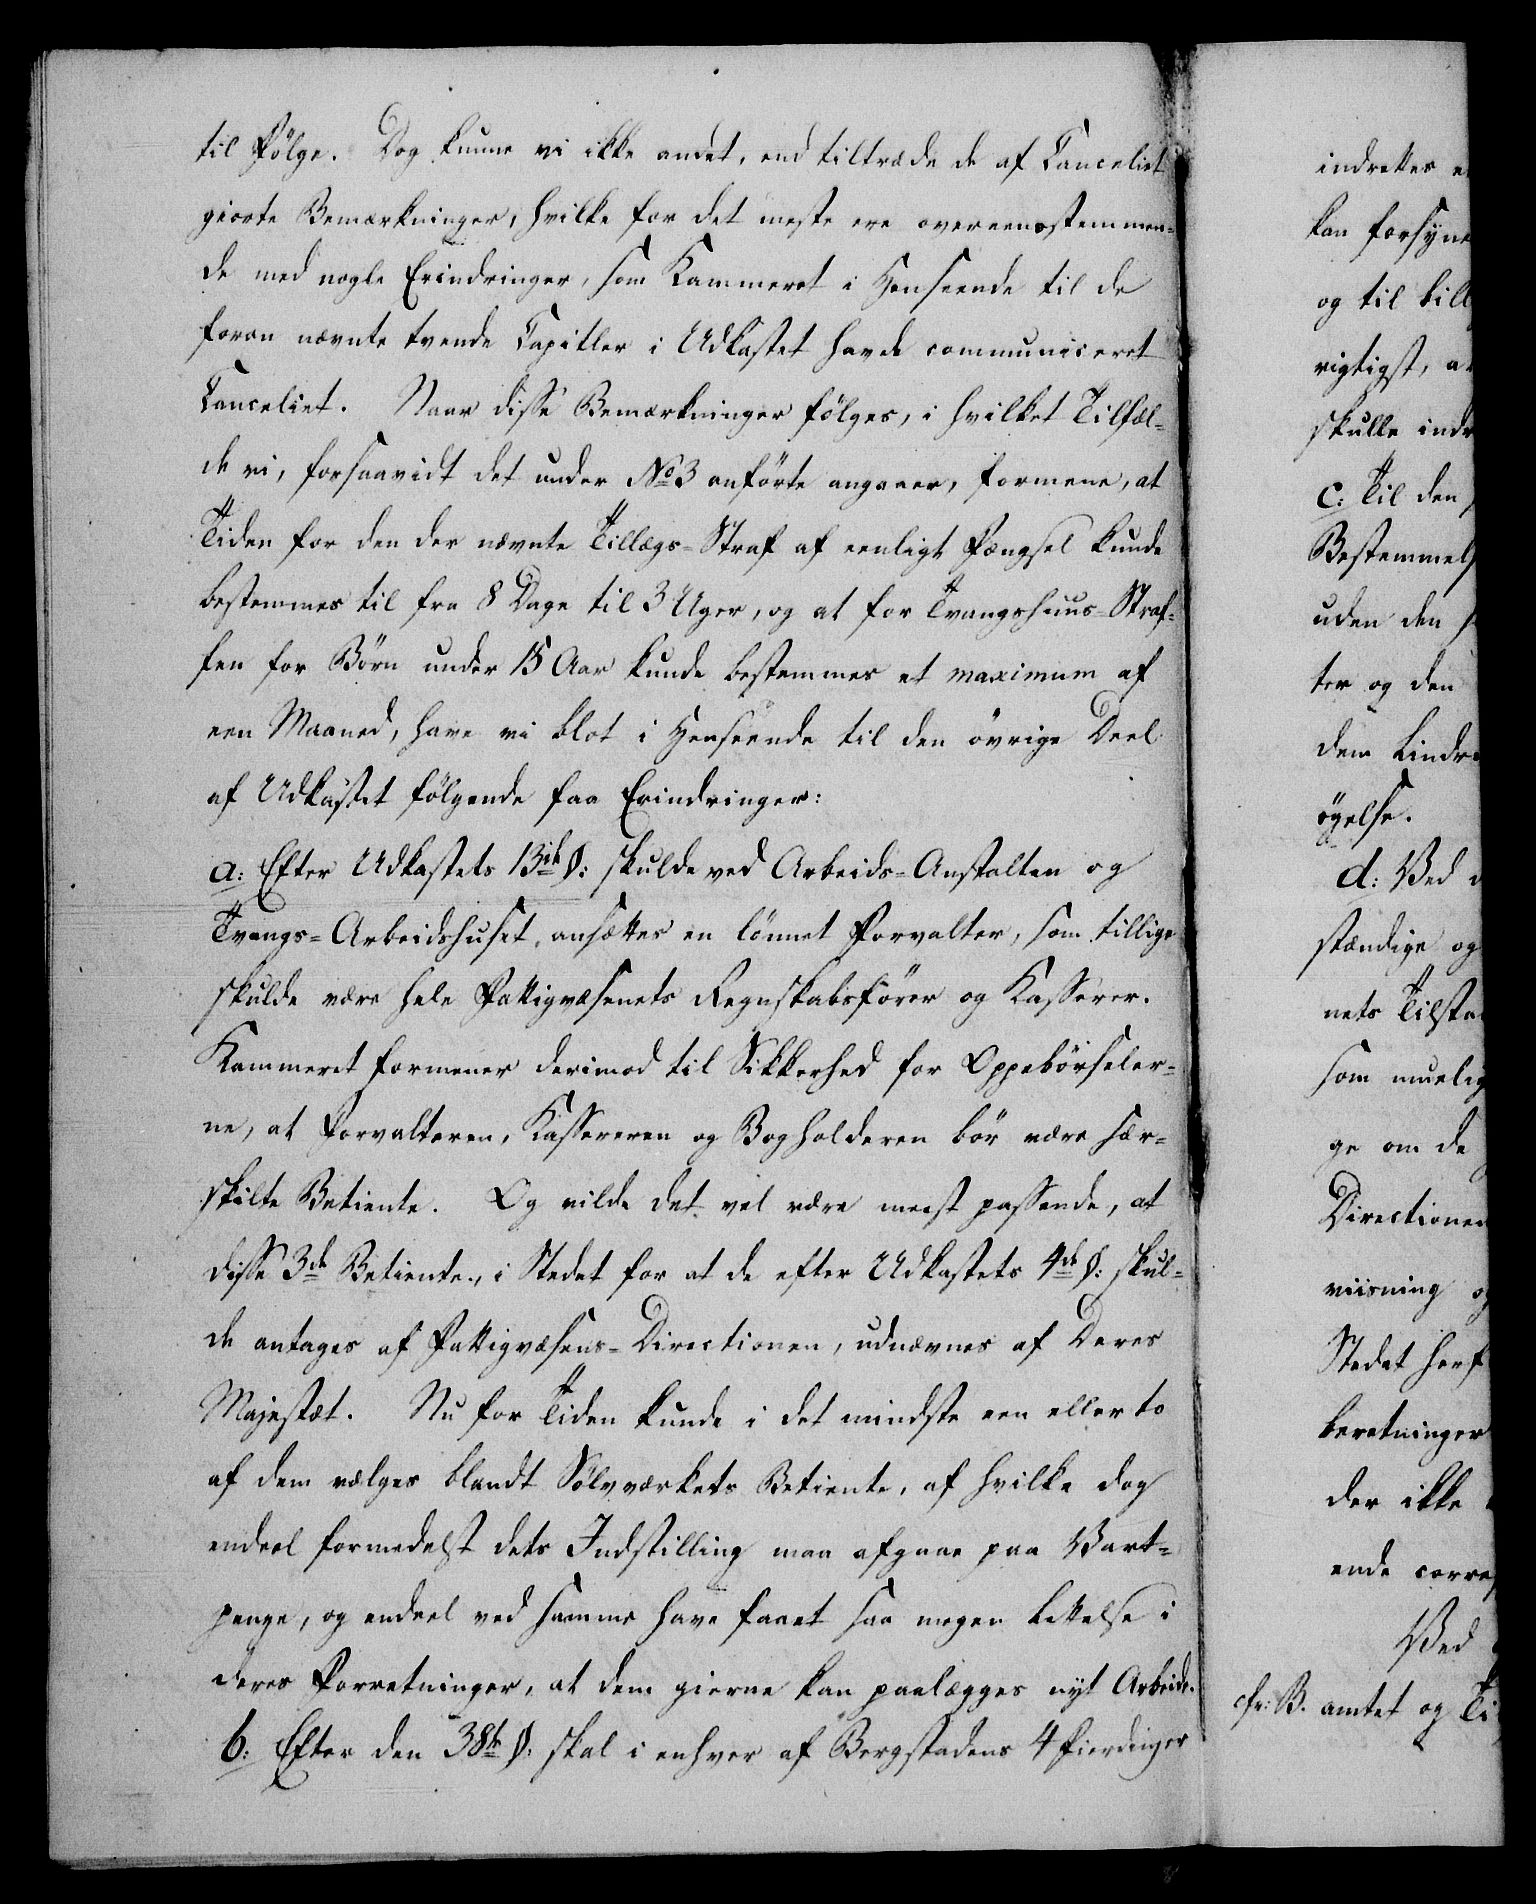 til Følge. Dog kunne vi ikke andet, end tiltræde de af Canceliet
giorte Bemærkninger, hvilke for det meste ere overeensstemmen-
de med nogle Erindringer, som Kammeret i Henseende til de
foran nævnte tvende Capitler i Udkastet havde communiceret
Cancelliet. Naar disse Bemærkninger følges, i hvilket Tilfæl-
de vi, forsaavidt det under No 3 anførte angaaer, formene, at
Tiden for den der nævnte Tillægs-Straf af eenligt Fængsel kunde
bestemmes til fra 8 Dage til 3 Uger, og at for Tvangshuus-Straf-
fen for Børn under 15 Aar kunde bestemmes et maximum af
een Maaned, have vi blot i Henseende til den øvrige Deel
af Udkastet følgende faa Erindringer:
a: Efter Udkastets 13de §: skulde ved Arbeids-Anstalten og
Tvangs-Arbeidshuset, ansættes en lønnet Forvalter, som tillige
skulde være hele Fattigvæsenets Regnskabsfører og Kasserer.
Kammeret formener derimod til Sikkerhed for Oppebørseler-
ne, at Forvalteren, Kassereren og Bogholderen bør være sær-
skilte Betiente. Og vilde det vel være meest passende, at
disse 3de Betiente, i Stedet for at de efter Udkastets 4de §: skul-
de antages af Fattigvæsens-Directionen, udnævnes af Deres
Majestæt. Nu for Tiden kunde i det mindste een eller to
af dem vælges blandt Sølvværkets Betiente, af hvilke dog
endeel formedelst dets Indstilling maa afgaae paa Vart-
penge, og endeel ved samme have faaet saa megen Lettelse i
deres Forretninger, at dem gierne kan paalægges nyt Arbeide.
b: Efter den 38te §: skal i enhver af Bergstadens 4 Fierdinger
indrettes
kan forsyne
og til bill
rigtigst, a
skulle indr
c: Til den
Bestemmels
uden den
ter og den
dem Lindr
øgelse.
d: Ved
stændige og
nets Tilsta
som muelig
ge om de
Directionen
viisning og
Stedet herf
beretninger
der ikke
ende corres
Ved
cfr: B. amtet og Ti